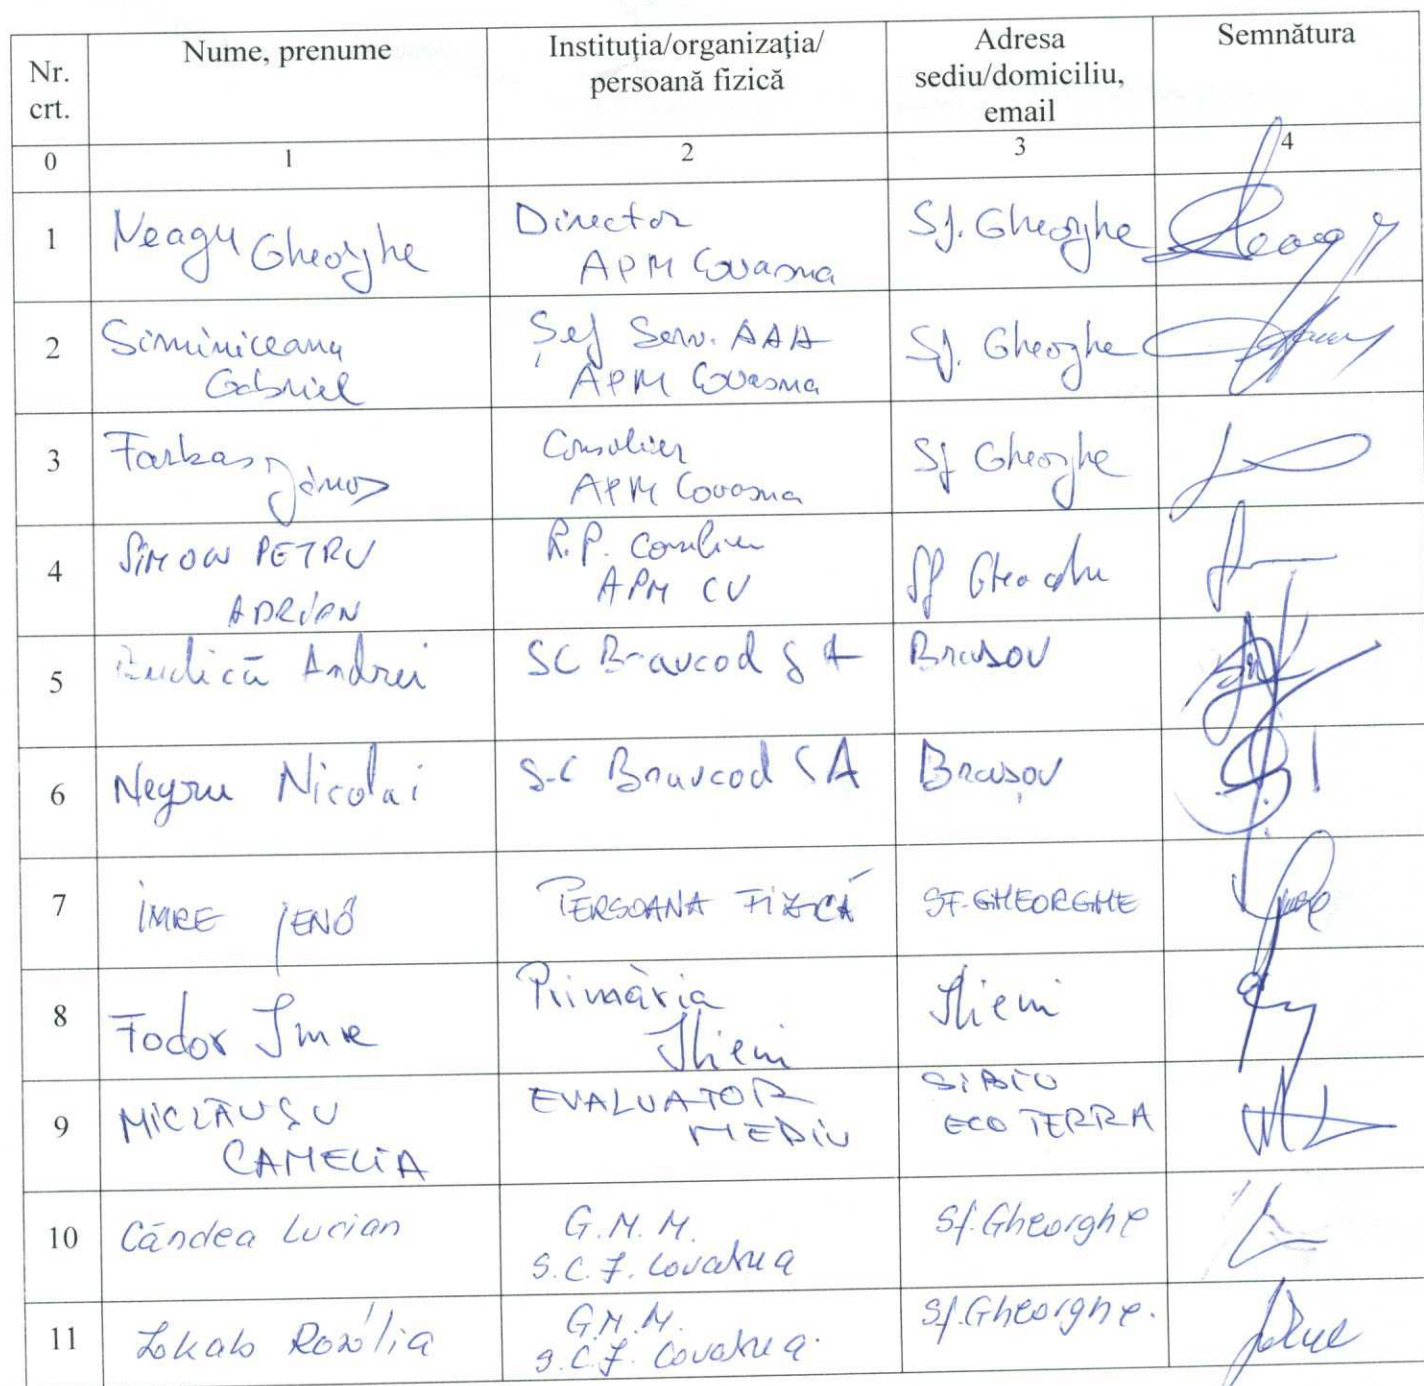 Nr. crt. Nume, prenume Instituţia/organizaţia/ persoană fizică Adresa sediu/domiciliu, email Semnătura
0 1 2 3 4
1 Neagu Gheorghe Director APM Covasna Sf. Gheorghe
2 Siminiceanu Gabriel Şef Serv. AAA APM Covasna Sf. Gheorghe
3 Farkas János Consilier APM Covasna Sf Gheorghe
4 SIMON PETRU ADRIAN R.P. Consilier APM CV Sf Gheorghe
5 Budică Andrei SC Bravcod SA Brasov
6 Negru Nicolai S.C Bravcod SA Braşov
7 IMRE JENŐ PERSOANA FIZICĂ SF. GHEORGHE
8 Fodor Imre Primăria Ilieni Ilieni
9 MICLĂUŞU CAMELIA EVALUATOR MEDIU SIBIU ECO TERRA
10 Cândea Lucian G.N.M. S.C.J. Covasna Sf. Gheorghe
11 Rozália G.N.M. S.C.J. Covasna. Sf. Gheorghe.